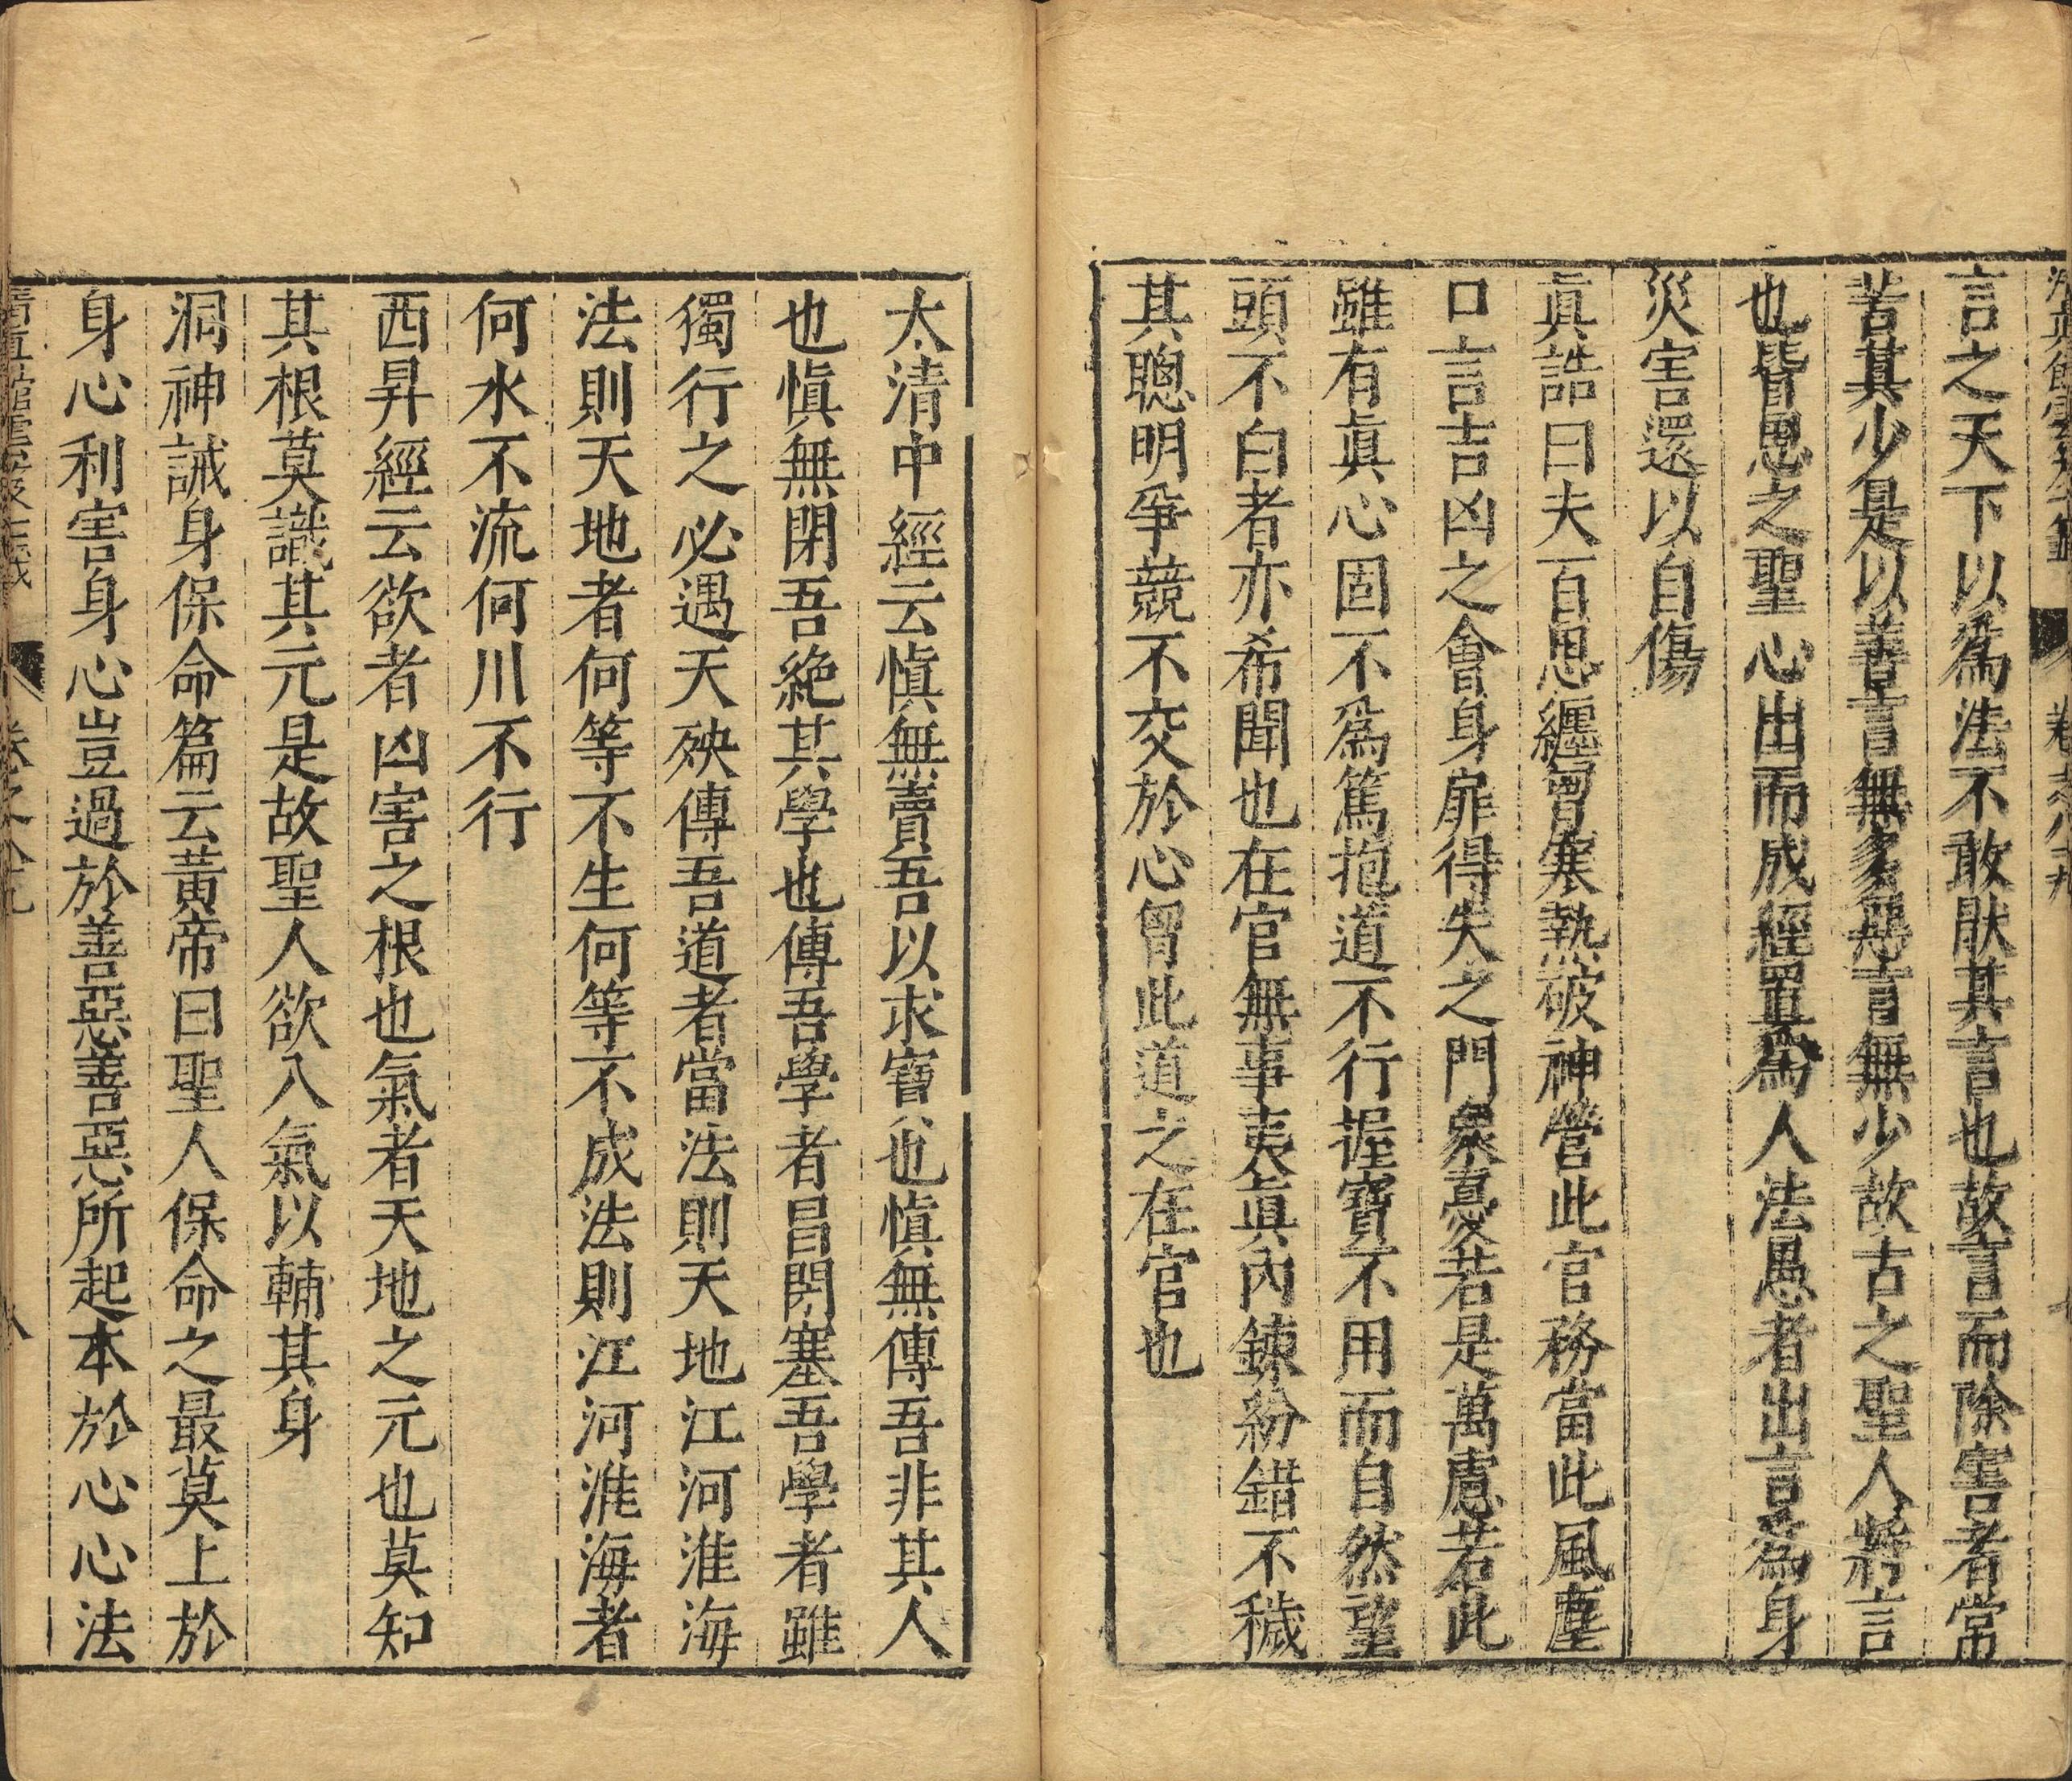 言之天下以爲法不敢猒其言也故言而除害者常
苦其少是以善言無多惡言無少故古之聖人將言
也皆思之聖心出而成經置爲人法愚者出言爲身
災害還以自傷
眞誥曰夫百思纏胷寒熱破神營此官務當此風塵
口言吉凶之會身扉得失之門衆憂若是萬慮若此
雖有眞心固不爲篤抱道不行握寶不用而自然望
頭不白者亦希聞也在官無事夷眞內鍊紛錯不穢
其聰明爭競不交於心胷此道之在官也
太清中經云愼無賣吾以求寶也愼無傳吾非其人
也愼無閉吾絶其學也傳吾學者昌閉塞吾學者雖
獨行之必遇天殃傳吾道者當法則天地江河淮海
法則天地者何等不生何等不成法則江河淮海者
何水不流何川不行
西昇經云欲者凶害之根也氣者天地之元也莫知
其根莫識其元是故聖人欲入氣以輔其身
洞神誡身保命篇云黃帝曰聖人保命之最莫上於
身心利害身心豈過於善惡善惡所起本於心心法
清眞館雲笈七籤 卷之八十九 八